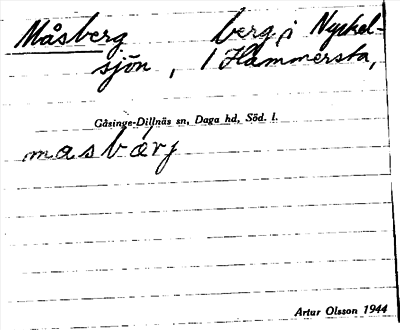 Måsberg berg i Nyckel-
sjön, 1 Hammersta,
Gåsinge-Dillnäs sn, Daga hd, Söd. l.
masbærj
Artur Olsson 1944